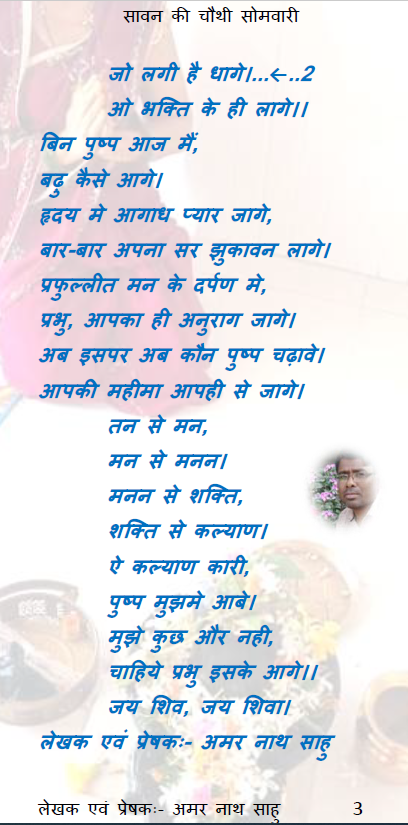 सावन की चौथी सोमवारी
जो लगी है धागे।...←..2
ओ भक्ति के ही लागे।।
बिन पुष्प आज मैं,
बढ़ु कैसे आगे।
हृदय मे आगाध प्यार जागे,
बार-बार अपना सर झुकावन लागे।
प्रफुल्लीत मन के दर्पण मे,
प्रभु, आपका ही अनुराग जागे।
अब इसपर अब कौन पुष्प चढ़ावे।
आपकी महीमा आपही से जागे।
तन से मन,
मन से मनन।
मनन से शक्ति,
शक्ति से कल्याण।
ऐ कल्याण कारी,
पुष्प मुझमे आबे।
मुझे कुछ और नही,
चाहिये प्रभु इसके आगे।।
जय शिव, जय शिवा।
लेखक एवं प्रेषकः- अमर नाथ साहु
लेखक एवं प्रेषकः- अमर नाथ साहु 3